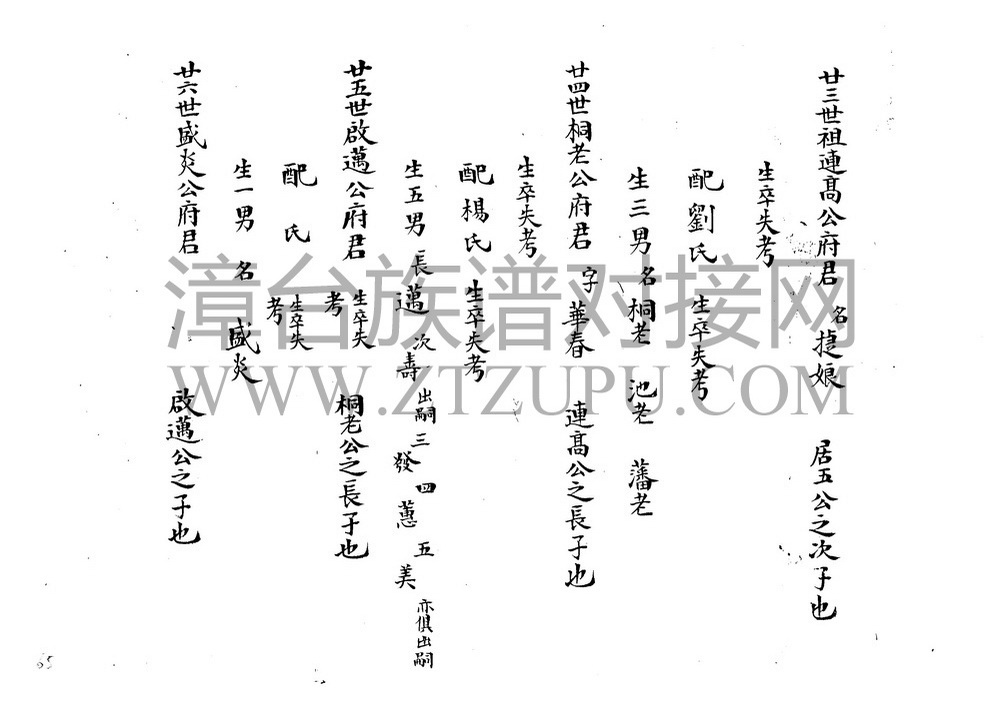 廿三世祖連髙公府君 名 捷娘 居五公之次子也
生卒失考
配劉氏 生卒失考
生三男 名 桐老 池老 藩老
廿四世桐老公府君 字 華春 連髙公之長子也
生卒失考
配楊氏 生卒失考
生五男 長邁 次壽 出嗣 三發 四蕙 五美 亦俱出嗣
廿五世啟邁公府君 生卒失考 桐老公之長子也
配 氏 生卒失考
生一男 名 盛炎
廿六世盛炎公府君 啟邁公之子也
漳台族谱对接网
WWW.ZTZUPU.COM
65